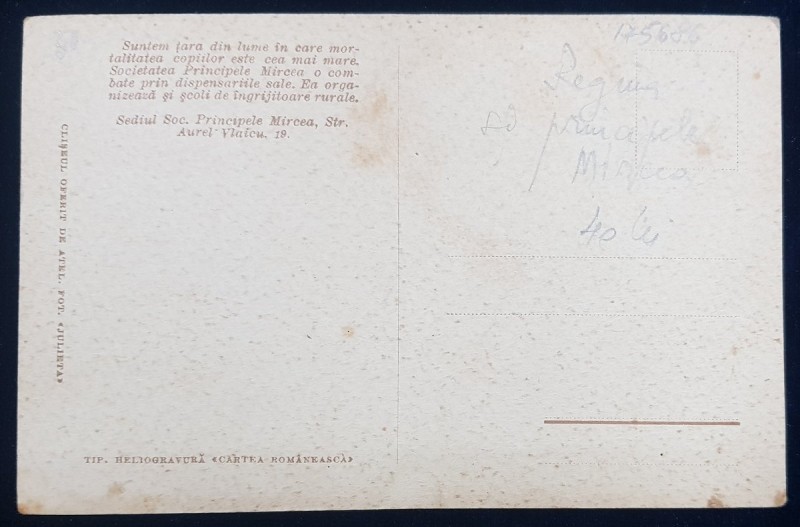 Suntem țara din lume în care mor-
talitatea copiilor este cea mai mare.
Societatea Principele Mircea o com-
bate prin dispensariile sale. Ea orga-
nizează și școli de îngrijitoare rurale.
Sediul Soc. Principele Mircea, Str.
Aurel Vlaicu, 19.
CLIȘEUL OFERIT DE ATEL. FOT. «JULIETA»
TIP. HELIOGRAVURĂ «CARTEA ROMÂNEASCĂ»
175686
Regina
principele
Mircea
40 lei